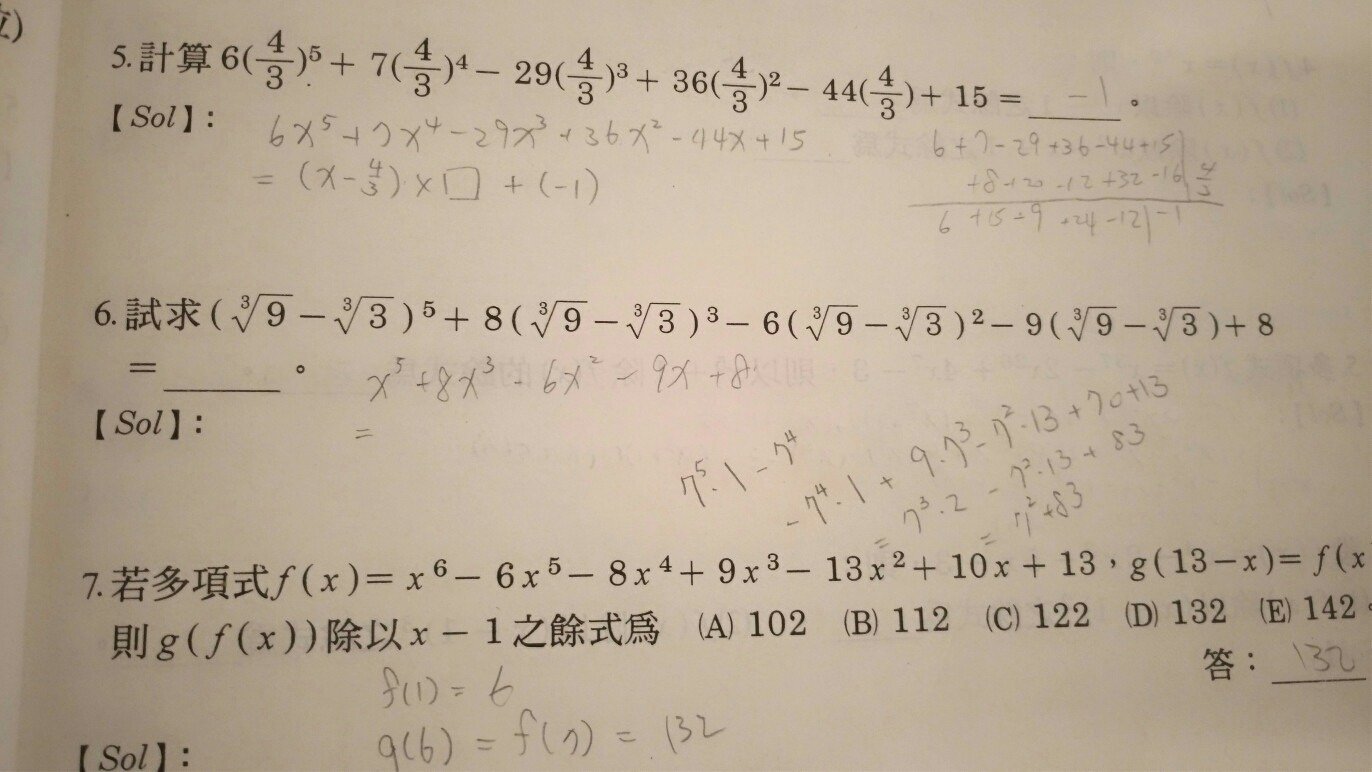 5. 計算 6(4/3)⁵ + 7(4/3)⁴ − 29(4/3)³ + 36(4/3)² − 44(4/3) + 15 = -1 。
【Sol】:
6x⁵+7x⁴-29x³+36x²-44x+15
= (x-4/3)×□+(-1)
6+7-29+36-44+15 | 4/3
+8+20-12+32-16
6+15-9+24-12|-1
6. 試求 (∛9 − ∛3)⁵ + 8(∛9 − ∛3)³ − 6(∛9 − ∛3)² − 9(∛9 − ∛3) + 8
= ______ 。
x⁵+8x³-6x²-9x+8
【Sol】:
=
7⁵·1-7⁴
-7⁴·1+9·7³-7²·13+70+13
= 7³·2-7²·13+83
= 7²+83
7. 若多項式 f(x) = x⁶ − 6x⁵ − 8x⁴ + 9x³ − 13x² + 10x + 13，g(13−x) = f(x
則 g(f(x)) 除以 x − 1 之餘式為 (A) 102 (B) 112 (C) 122 (D) 132 (E) 142
答：132
f(1)=6
g(6)=f(7)=132
【Sol】: